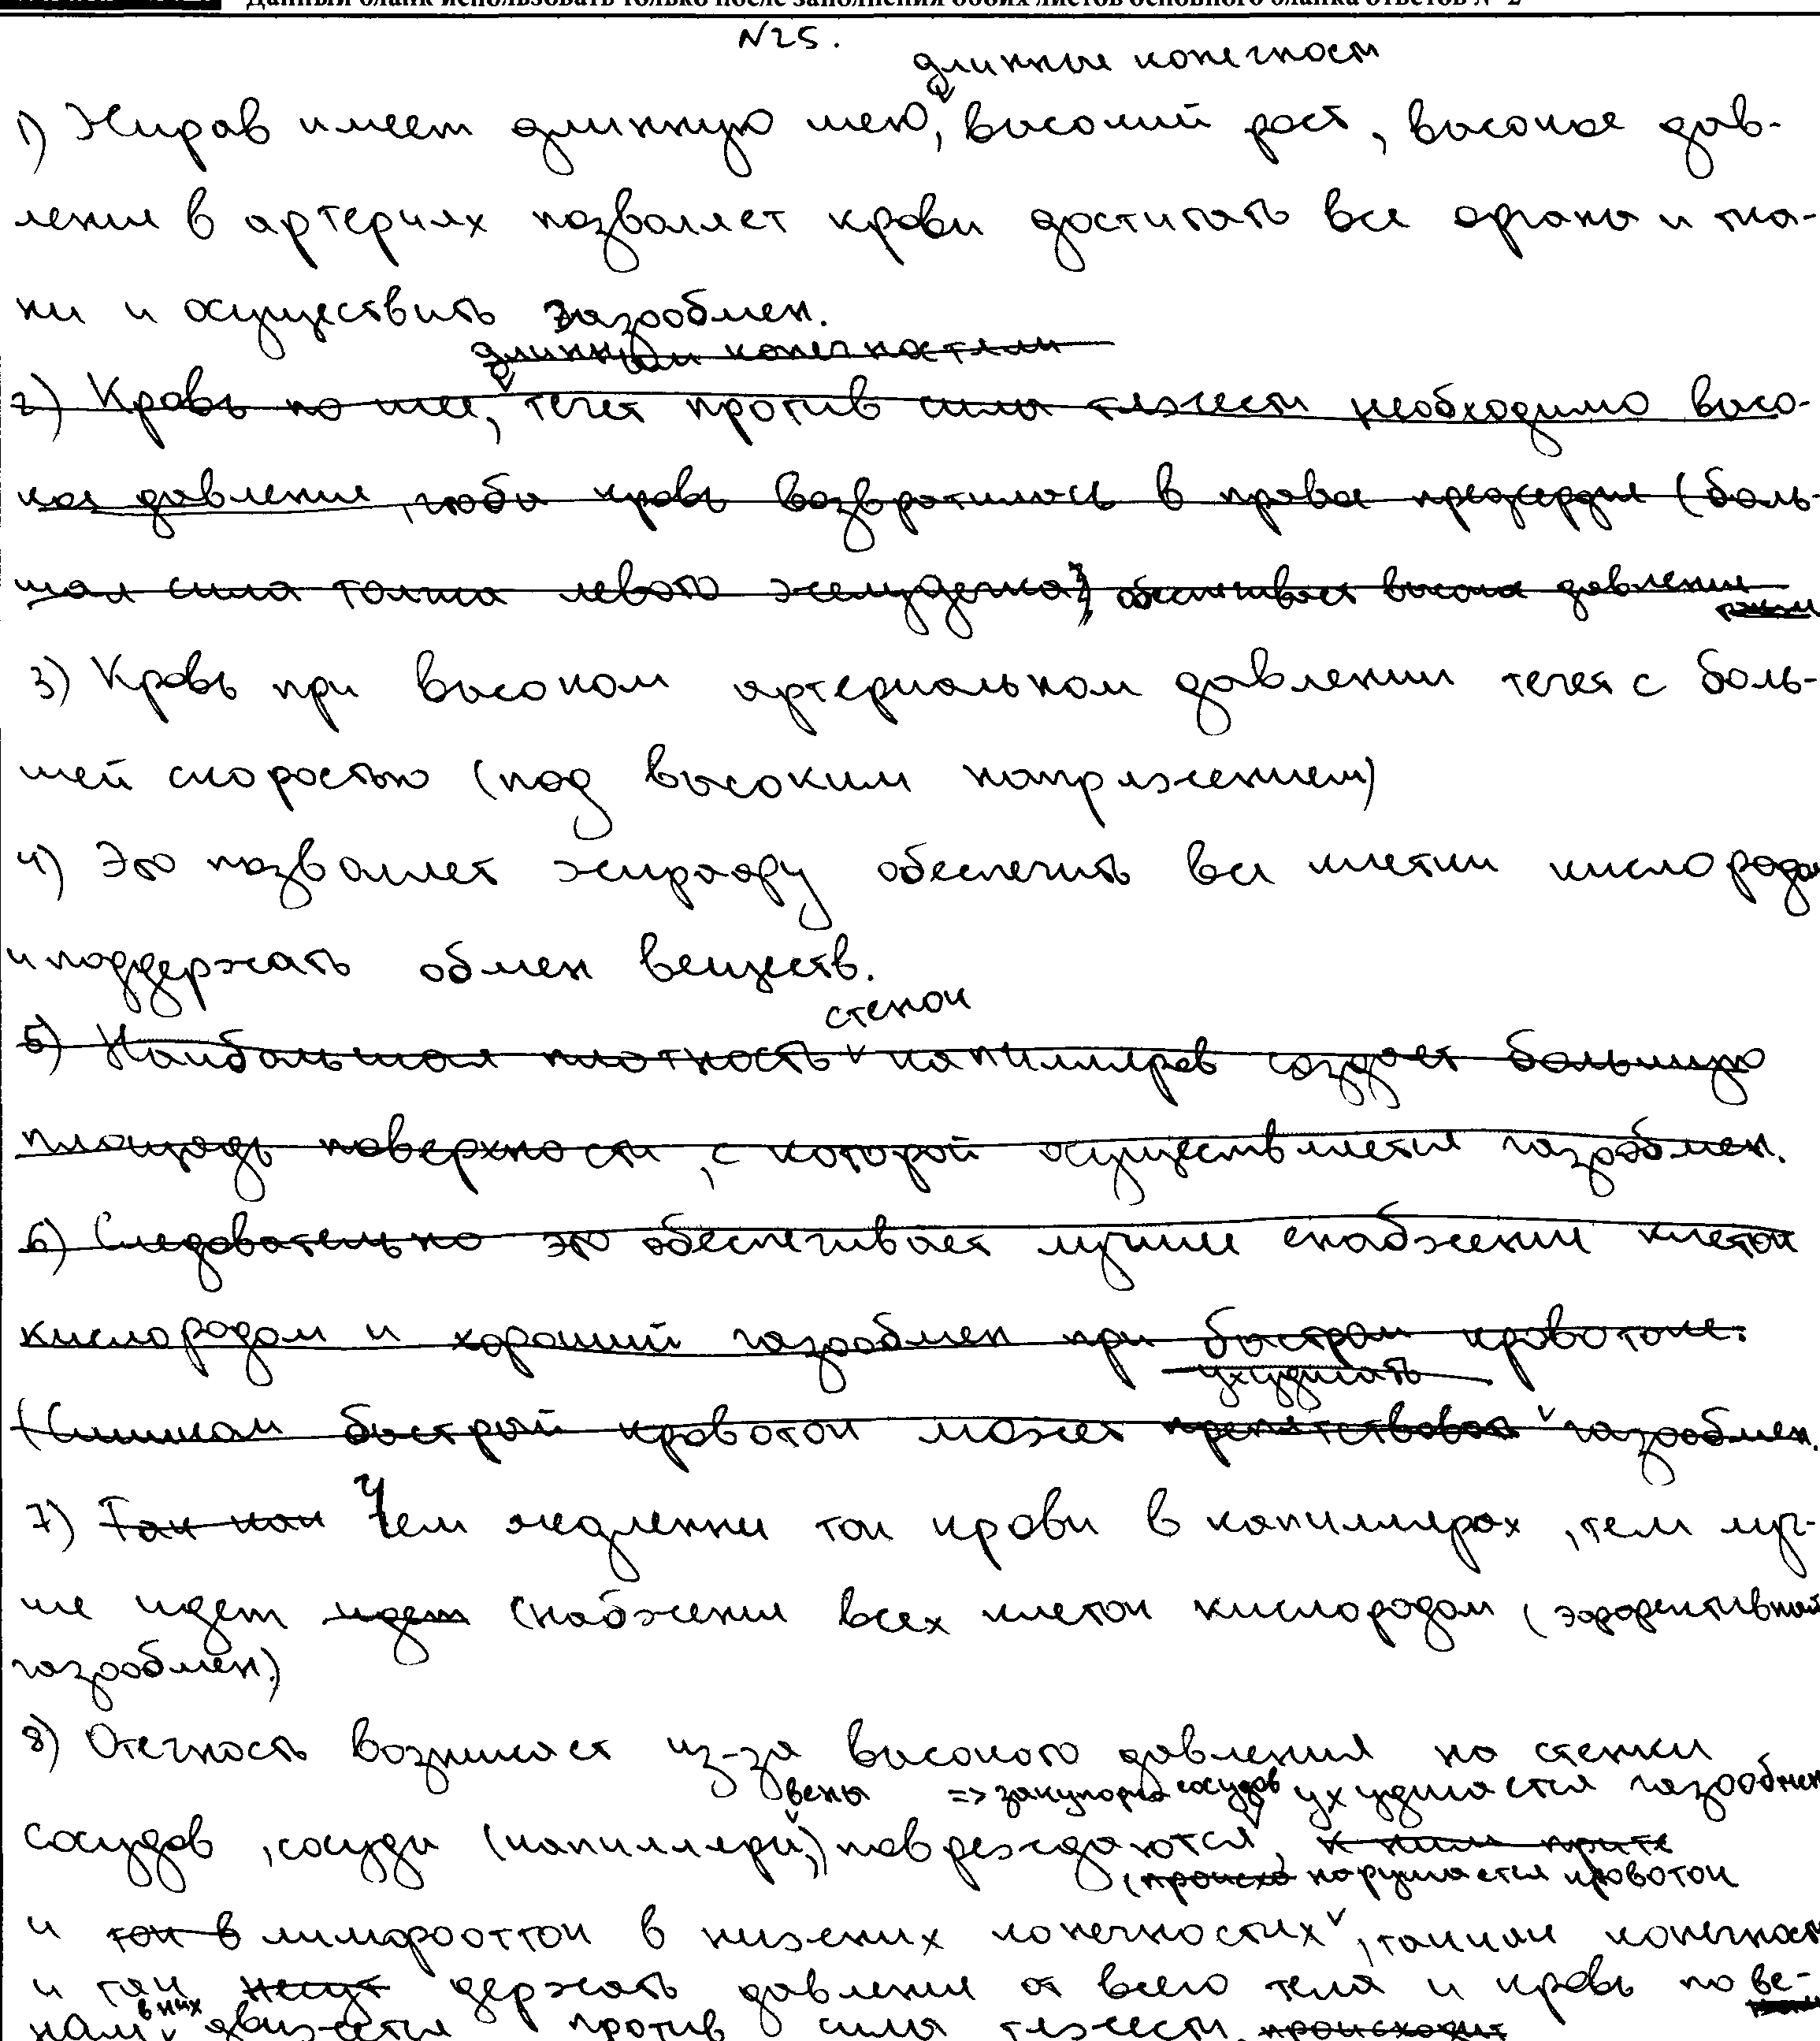 Данный бланк использовать только после заполнения обоих листов основного бланка ответов № 2
N25.
длинные конечности
1) Жираф имеет длинную шею, высокий рост, высокое дав-
ление в артериях позволяет крови достигать все органы и тка-
ни и осуществить газообмен.
длинными конечностями
2) Кровь по шее, течет против силы тяжести необходимо высо-
кое давление, чтобы кровь возвратилась в правое предсердие (боль-
шая сила толчка левого желудочка) обеспечивает высокое давление
3) Кровь при высоком артериальном давлении течет с боль-
шей скоростью (под высоким напряжением)
4) Это позволяет жирафу обеспечить все клетки кислородом
и поддержать обмен веществ.
стенок
5) Наибольшая плотность капилляров создает большую
площадь поверхности, с которой осуществляется газообмен.
6) Следовательно это обеспечивает лучшее снабжение клеток
кислородом и хороший газообмен при быстром кровотоке.
ухудшать
(Слишком быстрый кровоток может препятствовать газообмен.
7) Так как Чем медленнее ток крови в капиллярах, тем луч-
ше идет идет снабжение всех клеток кислородом (эффективный
газообмен.)
8) Отечность возникает из-за высокого давления на стенки
вены => закупорка сосудов ухудшается газообмен
сосудов, сосуды (капилляры,) повреждаются, к ним прите
(происхо нарушается кровоток
и ток в лимфоотток в нижних конечностях, так как конечности
и так несут держать давление от всего тела и кровь по ве-
в них
нам движется против силы тяжести, происходит